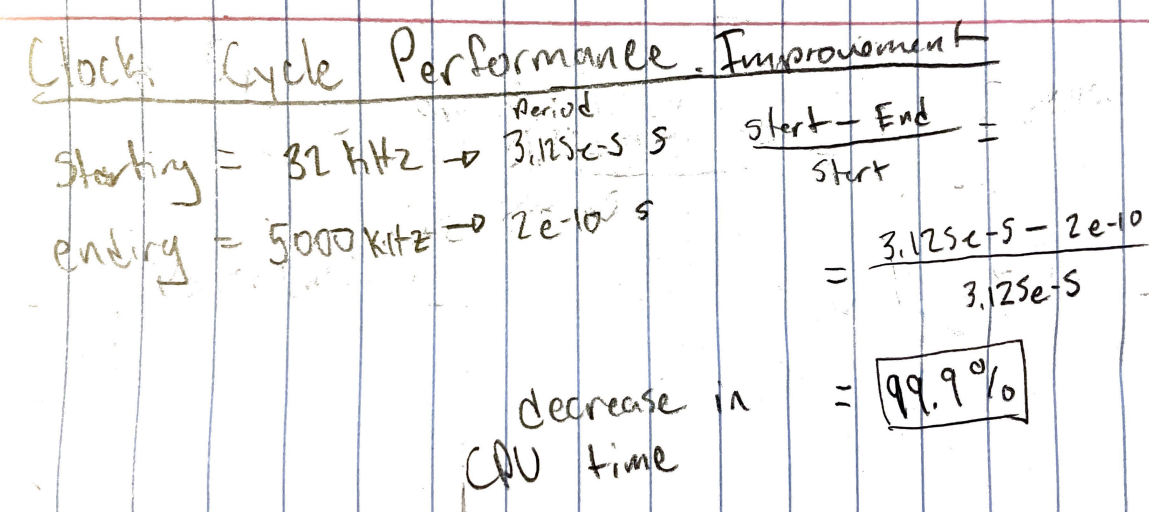 Clock Cycle Performance Improvement
Period
Starting = 32 kHz → 3.125e-5 s
ending = 5000 kHz → 2e-10 s
Start - End
Start
=
= 3.125e-5 - 2e-10
3.125e-5
decrease in = 99.9%
CPU time